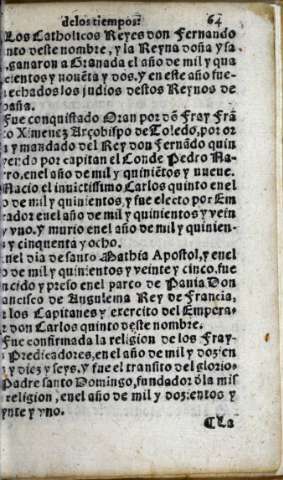 delos tiempos. 64
Los Catholicos Reyes don Fernando
nto deste nombre, y la Reyna doña ysa
ganaron a Granada el año de mil y qua
cientos y nouẽta y dos. y en este año fue
echados los judios destos Reynos de
paña.
Fue conquistado Oran por dõ Fray Frã
co Ximenez Arçobispo de Toledo, por or
y mandado del Rey don Fernãdo quin
yendo por capitan el Conde Pedro Na
ro, en el año de mil y quiniẽtos y nueue.
Nacio el inuictissimo Carlos quinto en el
o de mil y quinientos, y fue electo por Em
rador en el año de mil y quinientos y vein
y vno. y murio en el año de mil y quinien
y cinquenta y ocho.
n el dia de santo Mathia Apostol, y en el
o de mil y quinientos y veinte y cinco, fue
ncido y preso en el parco de Pauia Don
ancisco de Angulema Rey de Francia,
r los Capitanes y exercito del Empera
r don Carlos quinto deste nombre.
Fue confirmada la religion de los Fray-
Predicadores, en el año de mil y dozien
y diez y seys. y fue el transito del glorio-
Padre santo Domingo, fundador ð la mis
religion, en el año de mil y dozientos y
ynte y vno.
Cla